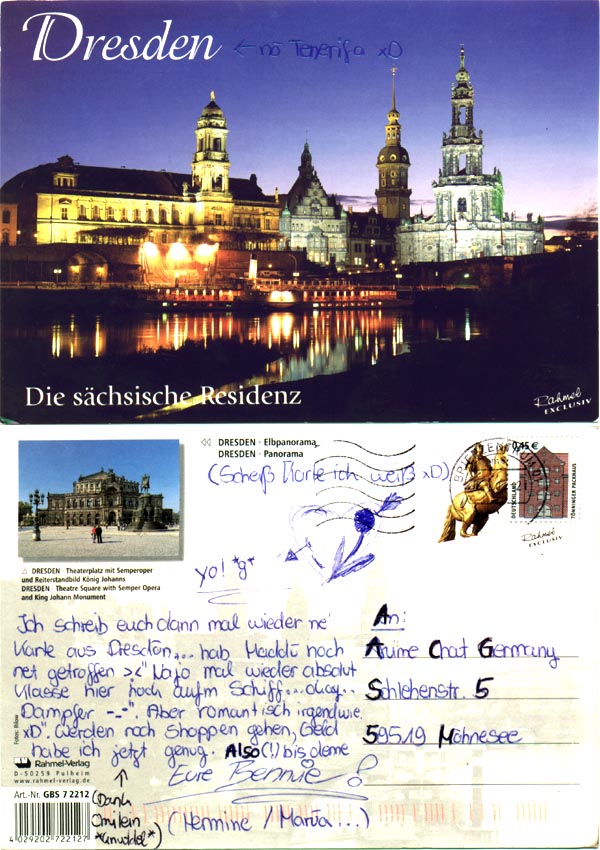 Dresden
← nö Tenerifa xD
Die sächsische Residenz
Rahmel
EXCLUSIV
DRESDEN · Elbpanorama
DRESDEN · Panorama
(Scheiß Karte ich weiß xD)
0,45 €
DEUTSCHLAND
TÖNNINGER PACKHAUS
Rahmel
EXCLUSIV
△ DRESDEN · Theaterplatz mit Semperoper
und Reiterstandbild König Johanns
DRESDEN · Theatre Square with Semper Opera
and King Johann Monument
yo! *g*
Ich schreib euch dann mal wieder ne'
Karte aus Dresdön... hab Maddü noch
net getroffen >.<" Najo mal wieder absolut
Klasse hier hoch aufm Schiff... okay..
Dampfer -_-". Aber romantisch irgendwie
xD. Werden noch Shoppen gehen, Geld
habe ich jetzt genug. Also(!) bis denne
Eure Bennie!
(Hermine / Maria...)
↑
(Dank
Omilein
*knuddel*)
An:
Anime Chat Germany
Schlehenstr. 5
59519 Möhnesee
Fotos: Böswe
Rahmel-Verlag
D-50259 Pulheim
www.rahmel-verlag.de
Art.-Nr. GBS 7 2212
4 029202 722127